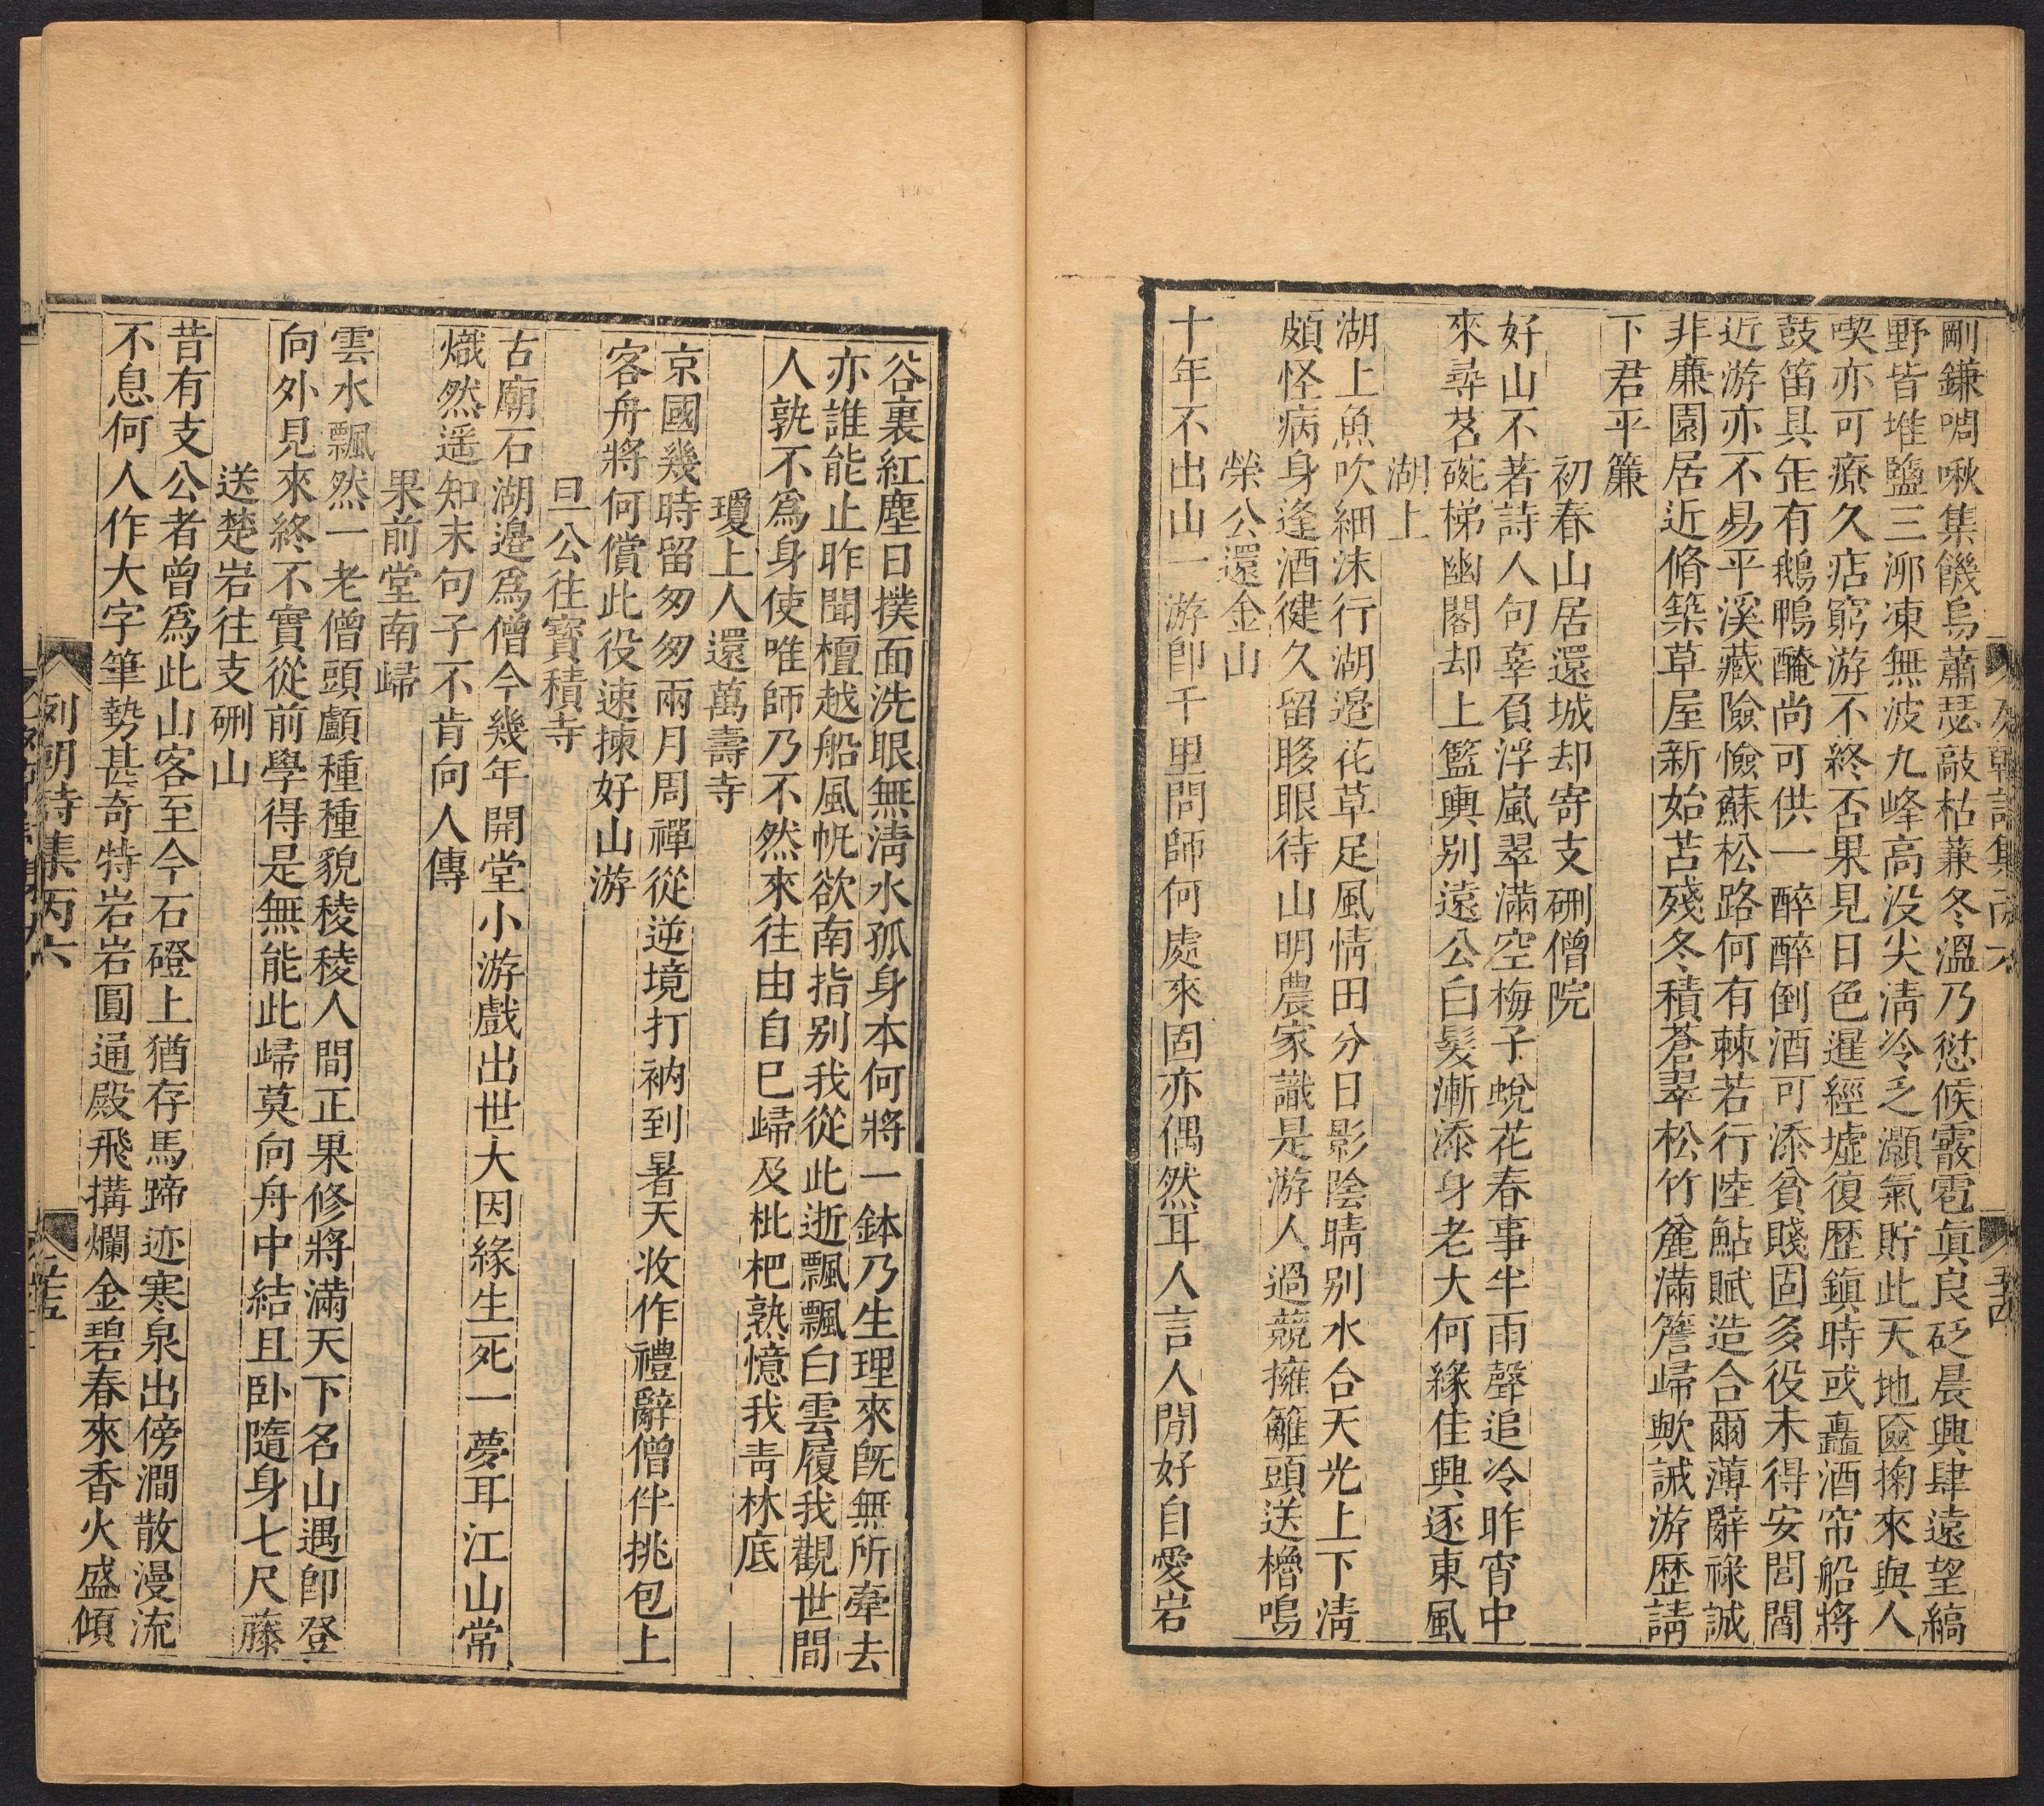 剛鎌啁啾集饑烏蕭瑟敲枯蒹冬溫乃愆候霰雹眞良砭晨興肆遠望縞
野皆堆鹽三泖凍無波九峰高没尖淸冷乏灝氣貯此天地匳掬來與人
喫亦可療久痁窮游不終否果見日色暹經墟復歷鎭時或轟酒帘船將
鼓笛具疟有鵝鴨醃尚可供一醉醉倒酒可添貧賤固多役未得安閭閻
近游亦不易平溪藏險憸蘇松路何有棘若行陸鮎賦造合爾薄辭祿誠
非廉園居近脩築草屋新始苫殘冬積蒼翠松竹龕滿簷歸歟誡游歷請
下君平簾
初春山居還城却寄支硎僧院
好山不著詩人句辜負浮嵐翠滿空梅子蛻花春事半雨聲追冷昨宵中
來尋茗碗梯幽閣却上籃輿別遠公白髮漸添身老大何緣佳興逐東風
湖上
湖上魚吹細沫行湖邉花草足風情田分日影陰晴別水合天光上下淸
頗怪病身逢酒健久留眵眼待山明農家識是游人過競擁籬頭送櫓鳴
榮公還金山
十年不出山一游卽千里問師何處來固亦偶然耳人言人閒好自愛岩
谷裏紅塵日撲面洗眼無淸水孤身本何將一鉢乃生理來旣無所牽去
亦誰能止昨聞檀越船風帆欲南指別我從此逝飄飄白雲履我觀世間
人孰不爲身使唯師乃不然來往由自巳歸及枇杷熟憶我靑林底
瓊上人還萬壽寺
京國幾時留匆匆兩月周禪從逆境打衲到暑天收作禮辭僧伴挑包上
客舟將何償此役速揀好山游
旦公往寶積寺
古廟石湖邉爲僧今幾年開堂小游戲出世大因緣生死一夢耳江山常
熾然遥知末句子不肯向人傳
果前堂南歸
雲水飄然一老僧頭顱種種貌稜稜人間正果修將滿天下名山遇卽登
向外見來終不實從前學得是無能此歸莫向舟中結且卧隨身七尺藤
送楚岩往支硎山
昔有支公者曾爲此山客至今石磴上猶存馬蹄迹寒泉出傍澗散漫流
不息何人作大字筆勢甚奇特岩岩圓通殿飛搆爛金碧春來香火盛傾
列朝詩集丙六